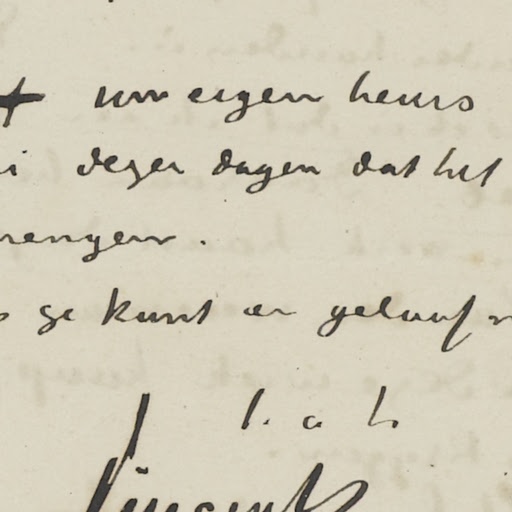 uw eigen keus
dezer dagen dat het
mengen.
ge kunt er geloof
t. à t.
Vincent